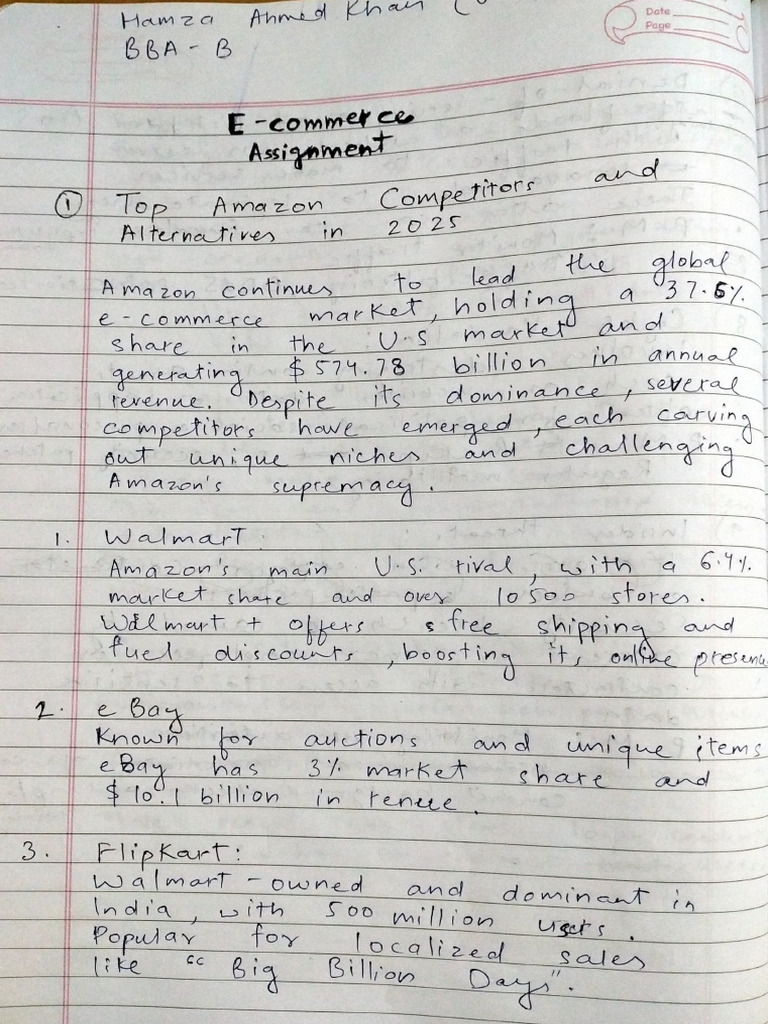 Hamza Ahmed Khan
BBA - B
Date
Page
E-commerce
Assignment
① Top Amazon Competitors and
Alternatives in 2025
Amazon continues to lead the global
e-commerce market, holding a 37.6%
share in the U.S market and
generating $574.78 billion in annual
revenue. Despite its dominance, several
competitors have emerged, each carving
out unique niches and challenging
Amazon's supremacy.
1. Walmart:
Amazon's main U.S. rival, with a 6.4%
market share and over 10500 stores.
Walmart + offers free shipping and
fuel discounts, boosting its online presenc
2. eBay
Known for auctions and unique items
eBay has 3% market share and
$10.1 billion in reneue.
3. Flipkart:
Walmart-owned and dominant in
India, with 500 million users.
Popular for localized sales
like "Big Billion Days".